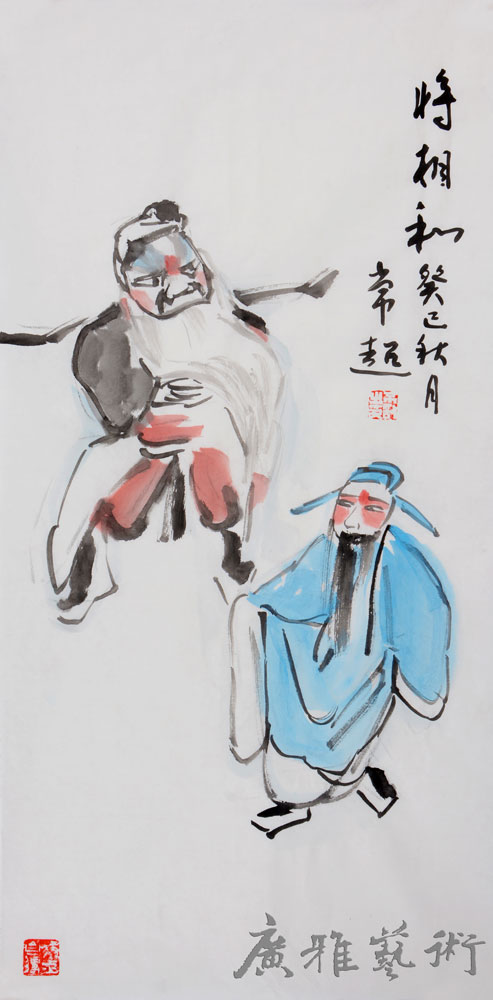 将相和
癸巳秋月
常超
廣雅藝術